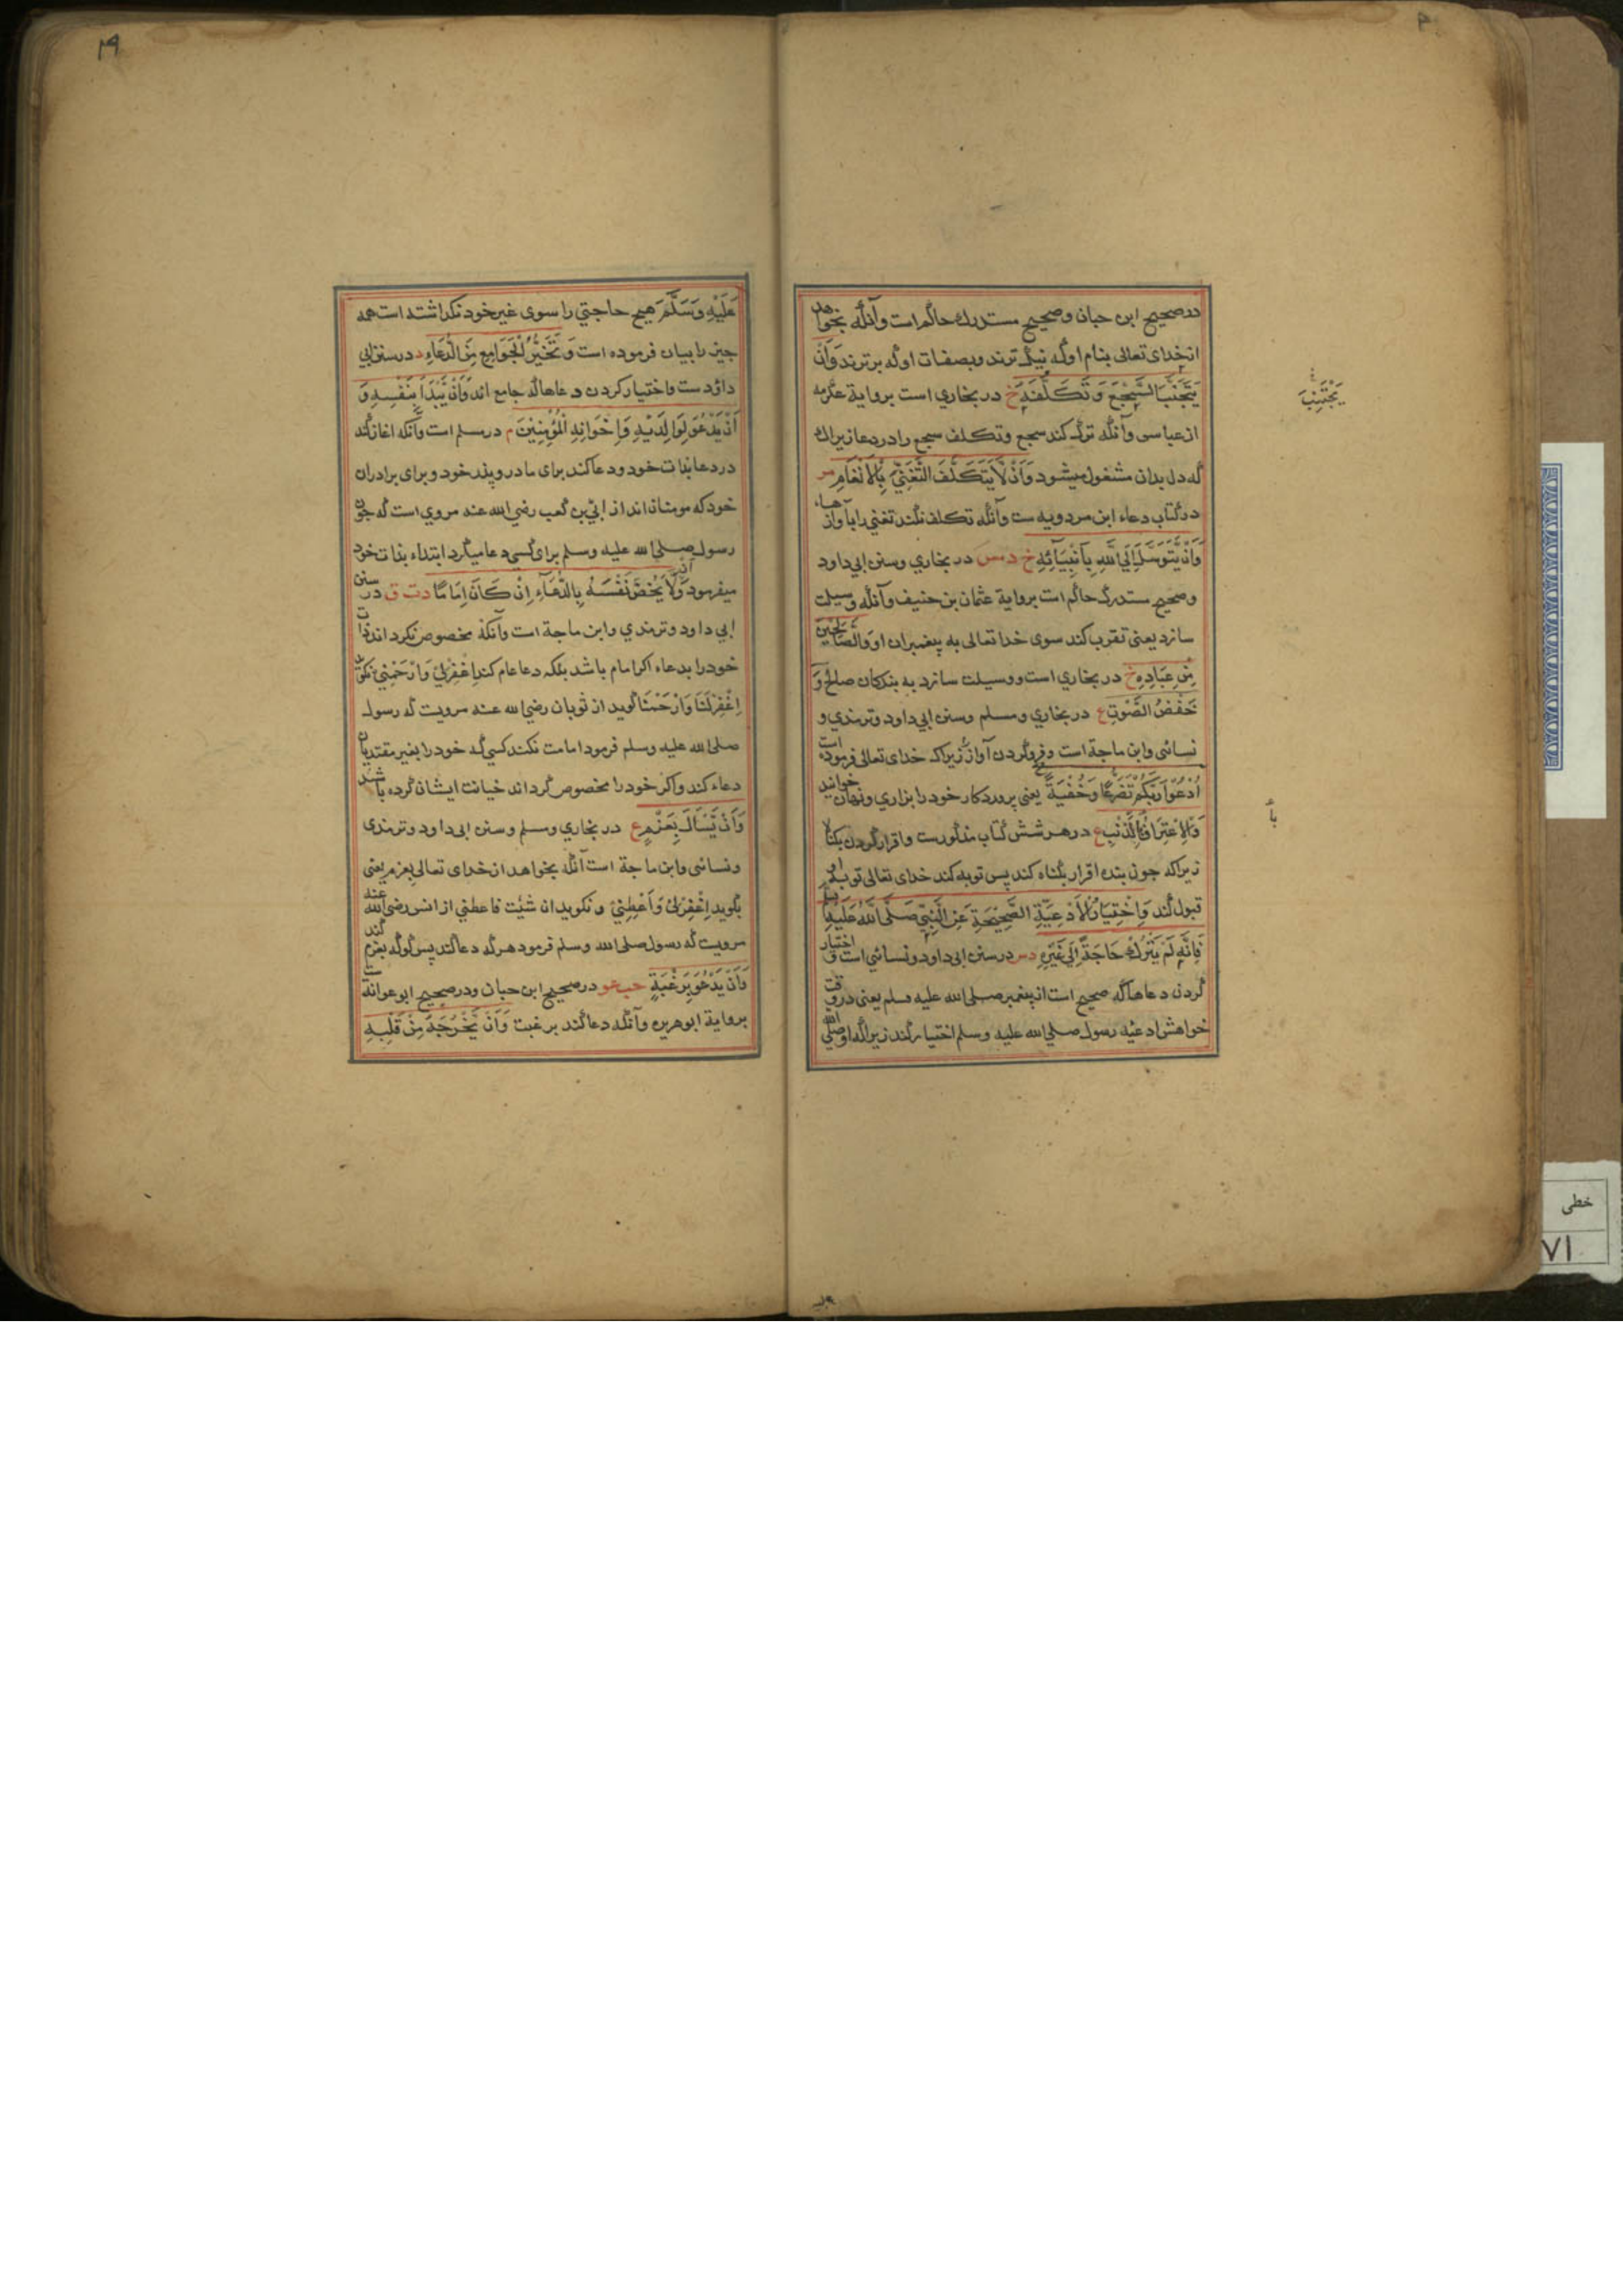 در صحیح ابن حبان وصحیح مستدرك حاكم است وآنكه بخواهد
از خدای تعالی بنام او كه نیك ترند وبصفات او كه برترند وَاَنْ
یَتَجَنَّبَ السَّجْعَ وَتَكَلُّفَهٗ خ در بخاري است بروایة عكرمه
از عباسی وآنكه ترك كند سجع وتكلف سجع را در دعا زیراك
كه دل بدان مشغول میشود وَاَنْ لَّا یَتَكَلَّفَ التَّغَنِّيَ بِالْاَنْغَامِ مر
در كتاب دعاء ابن مردویه ست وآنكه تكلف نكند تغني را بآوازها
وَاَنْ یَّتَوَسَّلَ اِلَي اللهِ بِاَنْبِیَآئِهٖ خ د مس در بخاري وسنن ابي داود
وصحیح ستدرك حاكم است بروایة عثمان بن حنیف وآنكه وسیلت
سازد یعنی تقرب كند سوی خدا تعالی به پیغمبران او وَالصَّالِحِیْنَ
مِنْ عِبَادِهٖ خ در بخاري است ووسیلت سازد به بندكان صالح وَ
خَفْضُ الصَّوْتِ ع در بخاري ومسلم وسنن ابي داود وترمذي و
نسائی وابن ماجة است وفروكردن آواز زیراك خدای تعالی فرموده است
اُدْعُوْا رَبَّكُمْ تَضَرُّعًا وَخُفْیَةً یعنی پروردكار خود را بزاري ونهان خوانید
وَالْاِعْتِرَافُ بِالذَّنْبِ ع در هر شش كتاب مذكورست واقرار كردن بكناه
زیراكه جون بنده اقرار بكناه كند پس توبه كند خدای تعالی توبه او
قبول كند وَاخْتِیَارُ الْاَدْعِیَةِ الصَّحِیْحَةِ عَنِ النَّبِيِّ صَلَّی اللهُ عَلَیْهِ
فَاِنَّهٗ لَمْ یَتْرُكْ حَاجَةً اِلَي غَیْرِهٖ دس در سنن ابی داود ونسائي است واختیار
كردن دعاها كه صحیح است از پیغمبر صلي الله علیه وسلم یعنی در وقت
خواهش ادعیه رسول صلي الله علیه وسلم اختیار كند زیراكه او صلي الله
یَجْتَنِبَ
بأ
عَلَیْهِ وَسَلَّمَ هیچ حاجتي را سوی غیر خود نكذاشته است همه
جیز را بیان فرموده است وَتَخَیُّرُ الْجَوَامِعِ مِنَ الدُّعَاءِ د در سنن ابي
داؤد ست واختیار كردن دعاها كه جامع اند وَاَنْ یَّبْدَأَ بِنَفْسِهٖ وَ
اَنْ یَدْعُوَ لِوَالِدَیْهِ وَاِخْوَانِهِ الْمُؤْمِنِیْنَ م در مسلم است وآنكه اغاز كند
در دعا بذات خود ودعا كند برای مادر وپدر خود وبرای برادران
خود كه مومنان اند از ابي بن كعب رضي الله عنه مروي است كه جون
رسول صلي الله علیه وسلم برای كسي دعا میكرد ابتداء بذات خود
میفرمود وَاَنْ لَّا یَخُصَّ نَفْسَهٗ بِالدُّعَآءِ اِنْ كَانَ اِمَامًا د ت ق در سنن
ابي داود وترمذي وابن ماجة است وآنكه مخصوص نكرداند ذات
خود را بدعاء اكر امام باشد بلكه دعا عام كند اِغْفِرْلِيْ وَارْحَمْنِيْ نكوید
اِغْفِرْلَنَا وَارْحَمْنَا كوید از ثوبان رضي الله عنه مرویت كه رسول
صلي الله علیه وسلم فرمود امامت نكند كسي كه خود را بغیر مقتدیان
دعاء كند واكر خود را مخصوص كرداند خیانت ایشان كرده باشد
وَاَنْ یَّسْاَلَ بِعَزْمٍ ع در بخاري ومسلم وسنن ابی داود وترمذی
ونسائی وابن ماجة است آنكه بخواهد از خدای تعالی بعزم یعنی
بكوید اِغْفِرْلِيْ وَاَعْطِنِيْ ونكوید ان شئت فاعطني از انس رضي الله عنه
مرویت كه رسول صلي الله وسلم فرمود هر كه دعا كند پس كو كه بعزم كند
وَاَنْ یَدْعُوَ بِرَغْبَةٍ حب عو در صحیح ابن حبان ودر صحیح ابو عوانة ست
بروایة ابو هریره وآنكه دعا كند برغبت وَاَنْ یُّخْرِجَهٗ مِنْ قَلْبِهٖ
خطی
۷۱